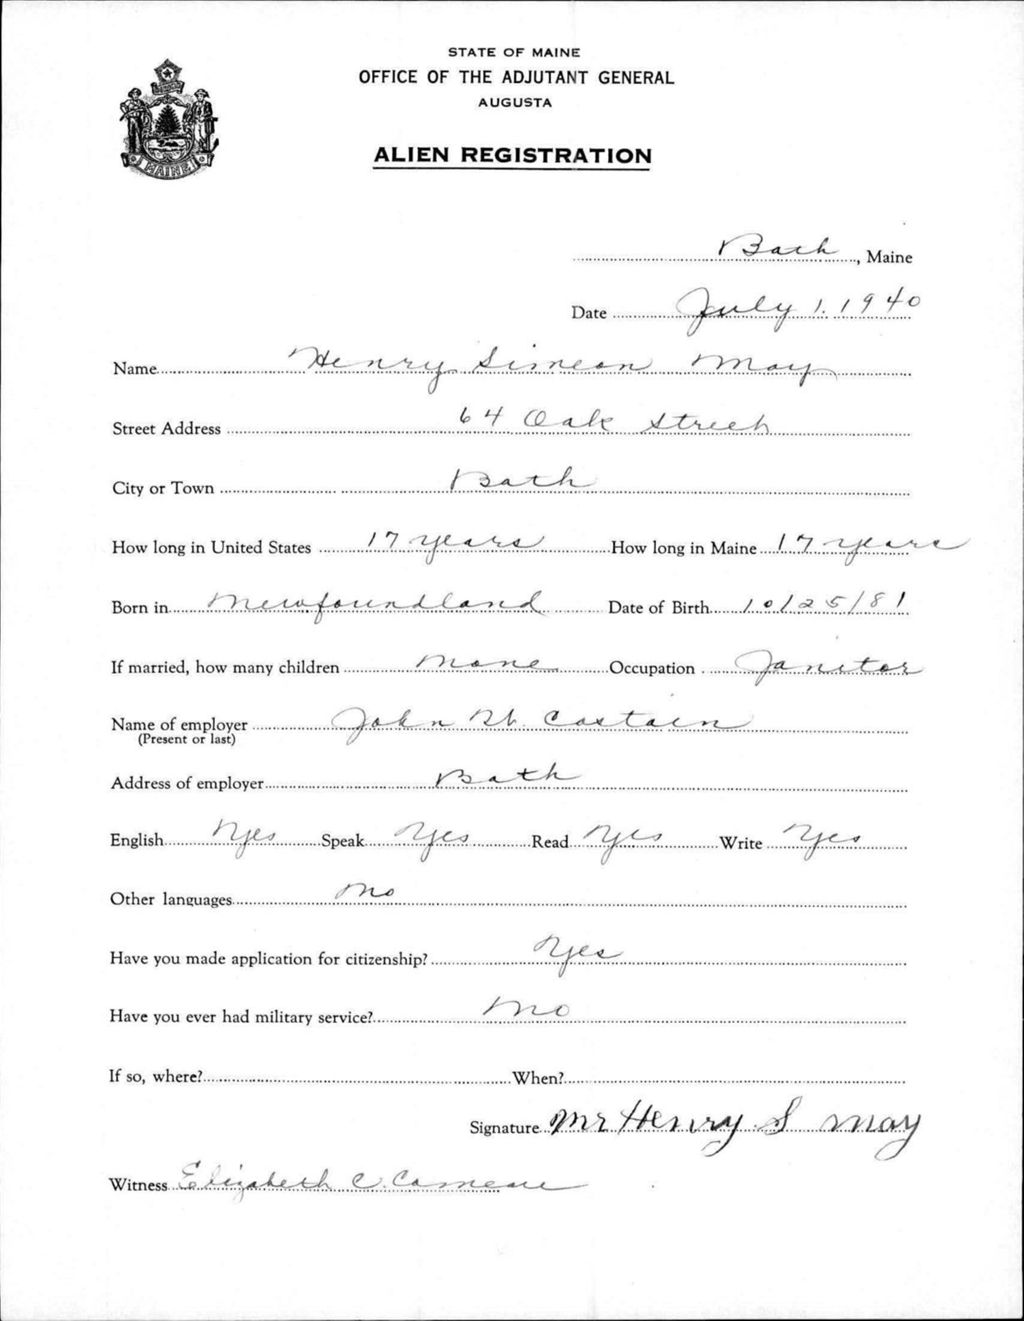 STATE OF MAINE
OFFICE OF THE ADJUTANT GENERAL
AUGUSTA
ALIEN REGISTRATION
MAINE
Bath, Maine
Date July 1. 1940
Name Henry Simeon May
Street Address 64 Oak Street
City or Town Bath
How long in United States 17 years How long in Maine 17 years
Born in Newfoundland Date of Birth 10/25/81
If married, how many children None Occupation Janitor
Name of employer John
(Present or last)
Address of employer Bath
English Yes Speak Yes Read Yes Write Yes
Other languages No
Have you made application for citizenship? Yes
Have you ever had military service? No
If so, where? When?
Signature Mr Henry S May
Witness Elizabeth C. Comeau